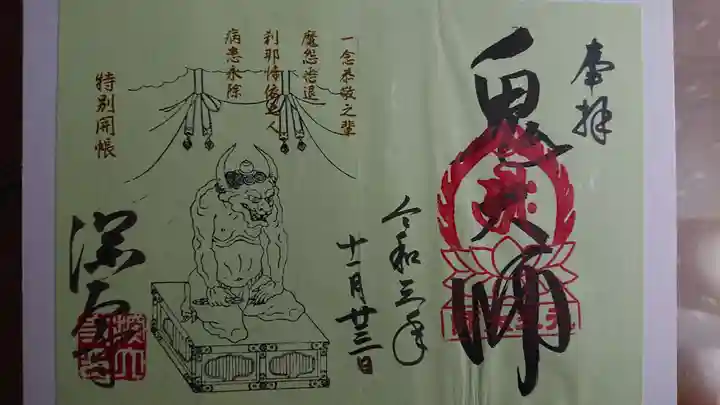 奉拝
鬼大師
令和三年
十一月廿三日
一念恭敬之輩
魔怨悉退
刹那帰依之人
病患永除
特別開帳
深大寺